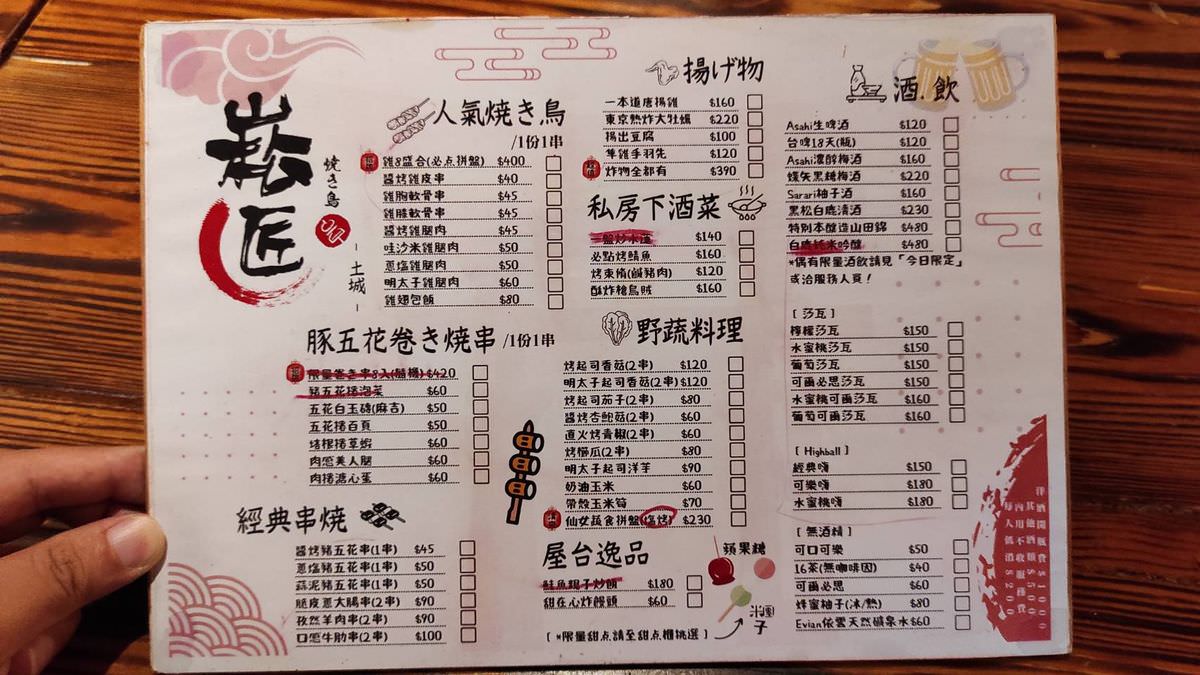 崧匠
焼き鳥
-土城-
人氣焼き鳥
/1份1串
雞8盛合(必点拼盤) $400
醬烤雞皮串 $40
雞胸軟骨串 $45
雞腿軟骨串 $45
醬烤雞腿肉 $45
哇沙米雞腿肉 $50
蔥塩雞腿肉 $50
明太子雞腿肉 $60
雞翅包飯 $80
豚五花卷き焼串 /1份1串
限量卷き串8入(隨機) $420
豬五花捲泡菜 $60
五花白玉磚(麻吉) $50
五花捲百頁 $50
培根捲草蝦 $60
肉蔥美人腿 $60
肉捲溏心蛋 $60
經典串燒
醬烤豬五花串(1串) $45
蔥塩豬五花串(1串) $50
蒜泥豬五花串(1串) $50
脆皮蔥大腸串(2串) $90
孜然羊肉串(2串) $90
口蔥牛肋串(2串) $100
揚げ物
一本道唐揚雞 $160
東京熱炸大牡蠣 $220
揚出豆腐 $100
隼雞手羽先 $120
炸物全都有 $390
私房下酒菜
一盤炒水蓮 $140
必點烤鯖魚 $160
烤束脩(鹹豬肉) $120
酥炸槍烏賊 $160
野蔬料理
烤起司香菇(2串) $120
明太子起司香菇(2串) $120
烤起司茄子(2串) $80
醬烤杏鮑菇(2串) $60
直火烤青椒(2串) $60
烤櫛瓜(2串) $80
明太子起司洋芋 $90
奶油玉米 $60
帶殼玉米筍 $70
仙女蔬食拼盤(塩烤) $230
屋台逸品
鮭魚親子炒飯 $180
甜在心炸饅頭 $60
[ *限量甜点請至甜点櫃挑選 ]
蘋果糖
糰子
酒.飲
Asahi生啤酒 $120
台啤18天(瓶) $120
Asahi濃醇梅酒 $160
媛矢黑糖梅酒 $220
Sarari柚子酒 $160
黑松白鹿清酒 $230
特別本釀造山田錦 $480
白鹿純米吟釀 $480
*偶有限量酒飲請見「今日限定」
或洽服務人員!
[ 莎瓦 ]
檸檬莎瓦 $150
水蜜桃莎瓦 $150
葡萄莎瓦 $150
可爾必思莎瓦 $150
水蜜桃可爾莎瓦 $160
葡萄可爾莎瓦 $160
[ Highball ]
經典嗨 $150
可樂嗨 $180
水蜜桃嗨 $180
[ 無酒精 ]
可口可樂 $50
16茶(無咖啡因) $40
可爾必思 $60
蜂蜜柚子(冰/熱) $80
Evian依雲天然礦泉水 $60
洋酒開瓶費$500
其他酒類$100
內用不收服務費
每人低消$200